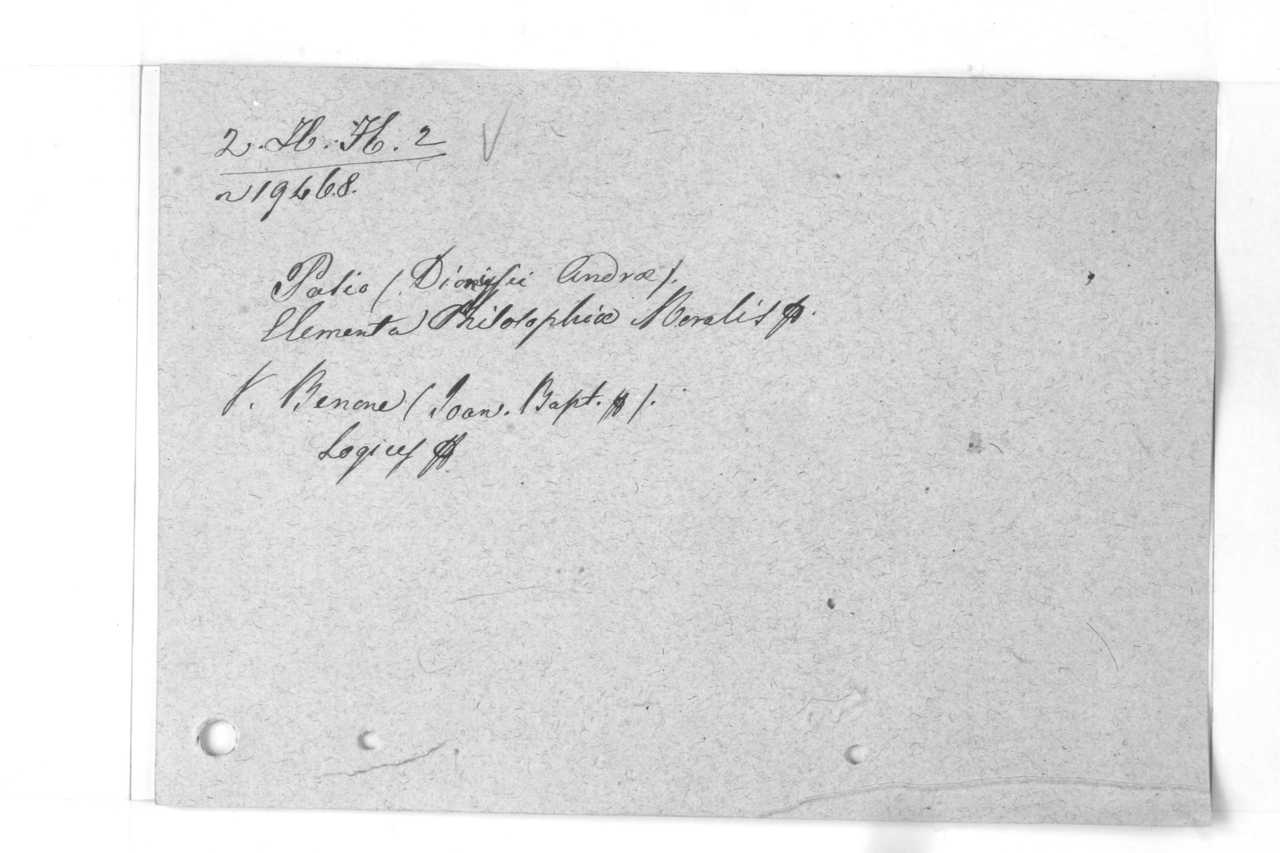 2. H. H. 2 V
n 19468.
Palio (Dionysii Andræ).
Elementa Philosophiæ Moralis
V. Benone (Ioan. Bapt. ).
Logices